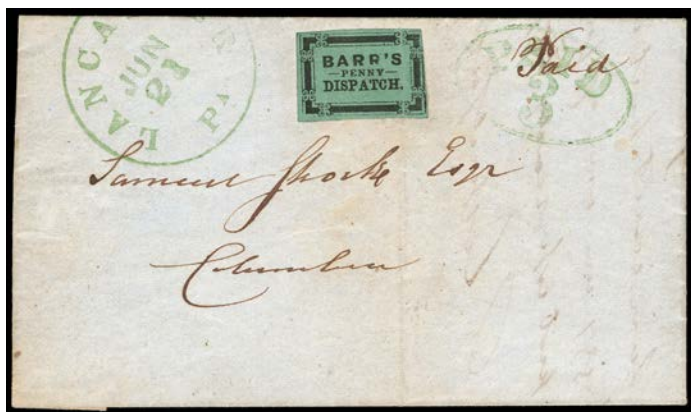 LANCASTER Pa
JUN
21
BARR'S
PENNY
DISPATCH.
PAID
3
Paid
Samuel Shocke Esqr
Columbia